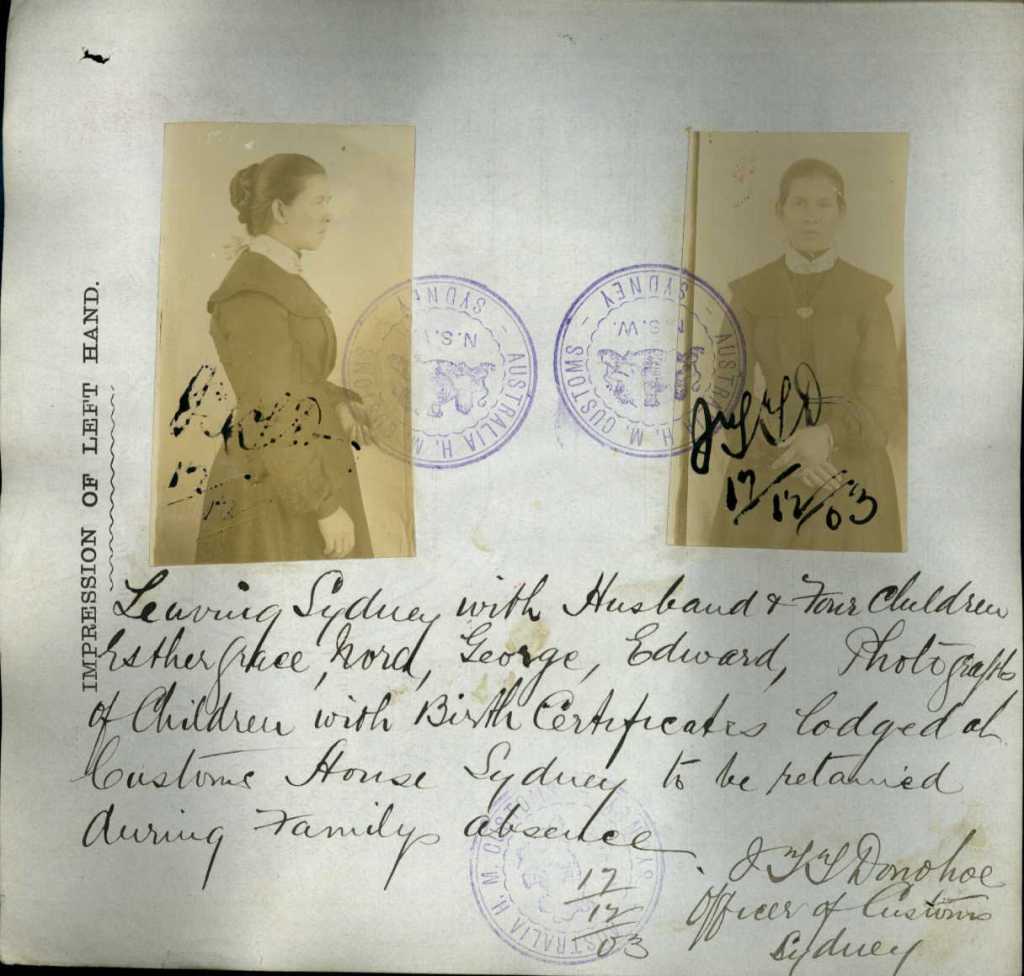 IMPRESSION OF LEFT HAND.
AUSTRALIA H. M. CUSTOMS
SYDNEY
N.S.W.
AUSTRALIA H. M. CUSTOMS
SYDNEY
N.S.W.
17/12/03
Leaving Sydney with Husband & Four Children
Esther Grace, Nora, George, Edward, Photographs
of Children with Birth Certificates lodged at
Customs House Sydney to be retained
during Familys absence.
AUSTRALIA H. M. CUSTOMS
17
12
03
Donohoe
Officer of Customs
Sydney